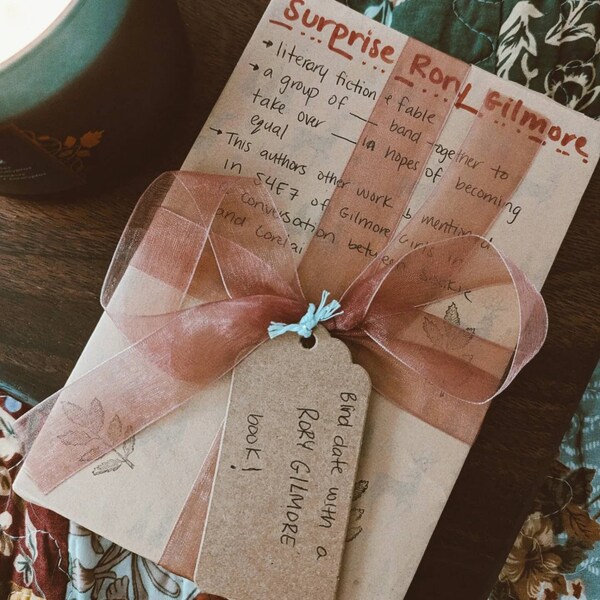 Surprise Rory Gilmore
→ literary fiction & fable
→ a group of ___ band together to
take over ___ in hopes of becoming
equal
→ This authors other work is mentioned
in S4E7 of Gilmore Girls in a
conversation between Sookie
and Lorelai
Blind date with a
RORY GILMORE
book!